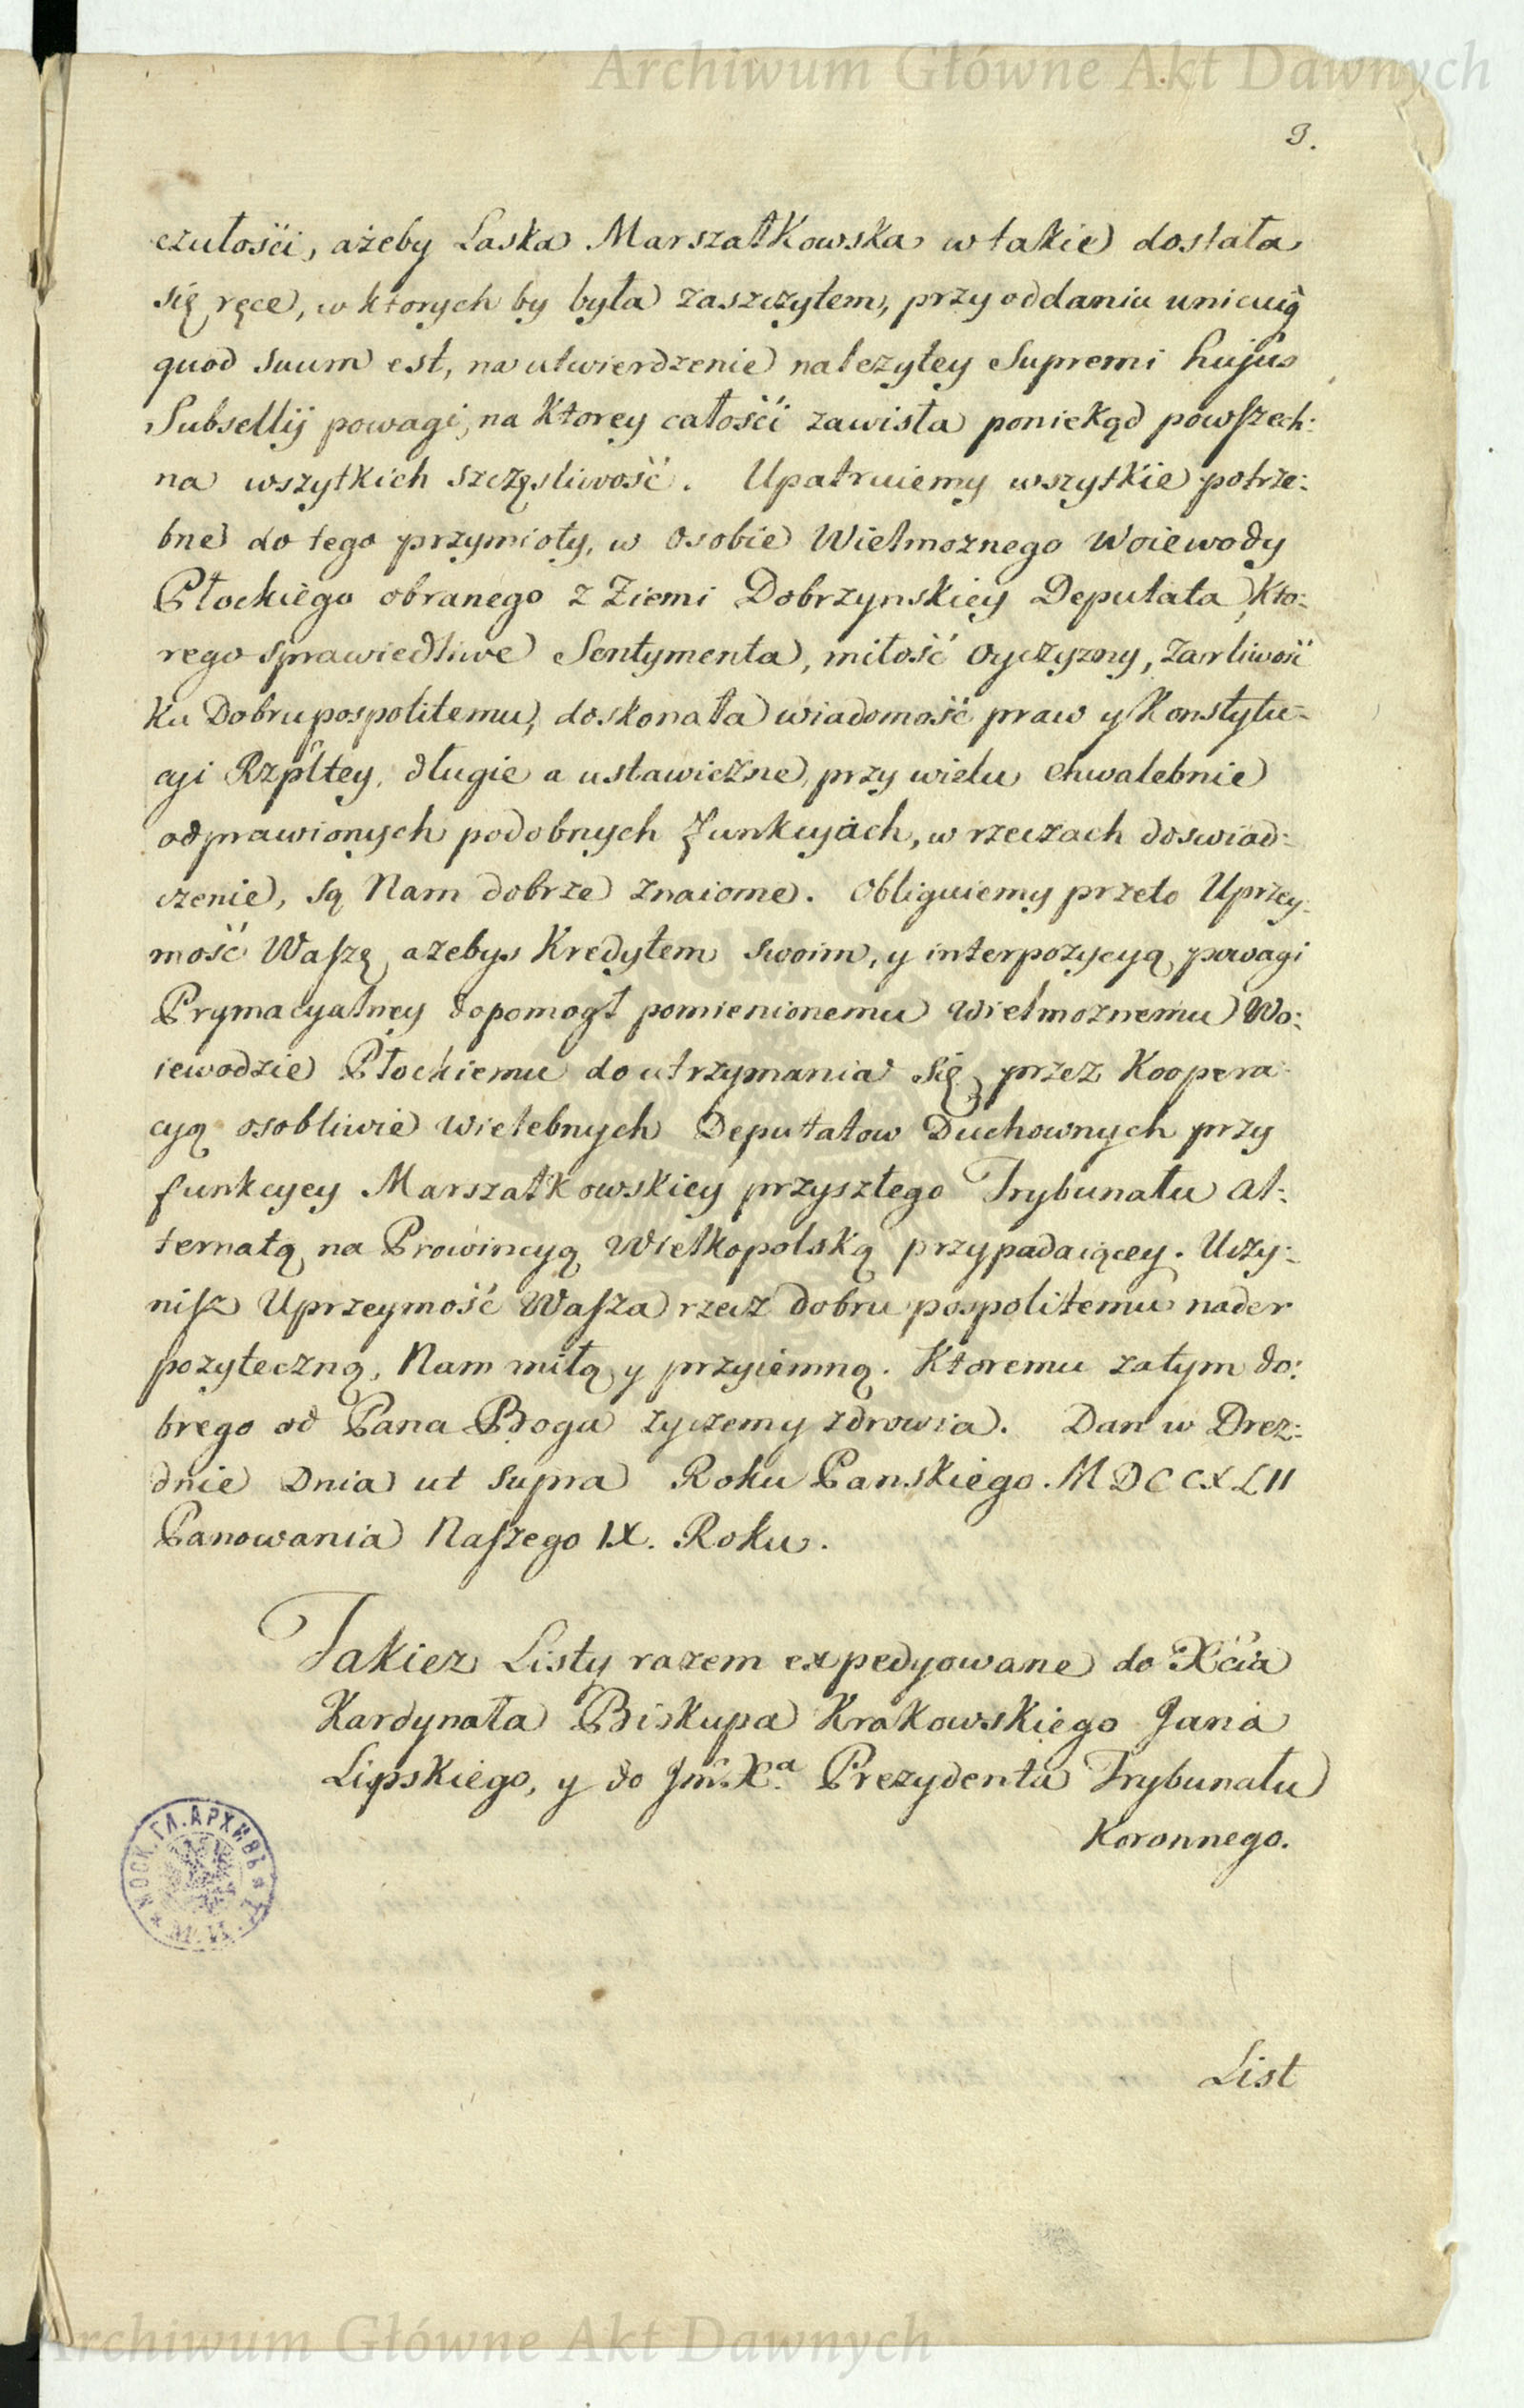 Archiwum Główne Akt Dawnych
3.
czułośći, ażeby Laska Marszałkowska w takie dostała
się ręce, w ktorych by była zaszczytem, przy oddaniu unicuiq
quod suum est, na utwierdzenie należytey Supremi hujus
Subsellij powagi, na ktorey całośći zawisła poniekąd powszech:
na wszytkich szczęsliwość. Upatruiemy wszytkie potrze:
bne do tego przymioty, w Osobie Wielmoznego Woiewody
Płockiego obranego z Ziemi Dobrzynskiey Deputata, kto:
rego sprawiedliwe Sentymenta, miłość Oyczyzny, zarliwość
ku Dobrupospolitemu, doskonała wiadomość praw y Konstytu:
cyi Rzpltey, długie a ustawiczne, przy wielu chwalebnie
odprawionych podobnych funkcyach, w rzeczach doswiad:
czenie, są Nam dobrze znaiome. Obliguiemy przeto Uprzey:
mość Waszę, azebys Kredytem swoim, y interpozycyą powagi
Prymacyalney dopomogł pomienionemu Wielmoznemu Wo:
iewodzie Płockiemu do utrzymania się, przez Koopera:
cyą osobliwie Wielebnych Deputatow Duchownych przy
funkcyey Marszałkowskiey przyszłego Trybunału al:
ternatą na Prowincyą Wielkopolską przypadaiącey. Uczy:
nisz Uprzeymość Wasza rzecz dobru pospolitemu nader
pozyteczną, Nam miłą y przyiemną. Ktoremu zatym do:
brego od Pana Boga zyczemy zdrowia. Dan w Drez:
dnie Dnia ut supra Roku Panskiego. MDCCXLII
Panowania Naszego IX. Roku.
Takiez Listy razem expedyowane do Xćia
Kardynała Biskupa Krakowskiego Jana
Lipskiego, y do Jm. Xa. Prezydenta Trybunału
Koronnego.
МОСК. ГЛ. АРХИВЪ
List
Archiwum Główne Akt Dawnych